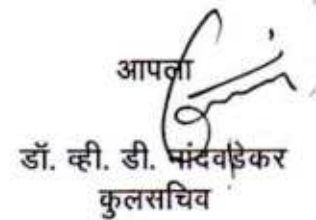 आपला
डॉ. व्ही. डी. नांदवडेकर
कुलसचिव